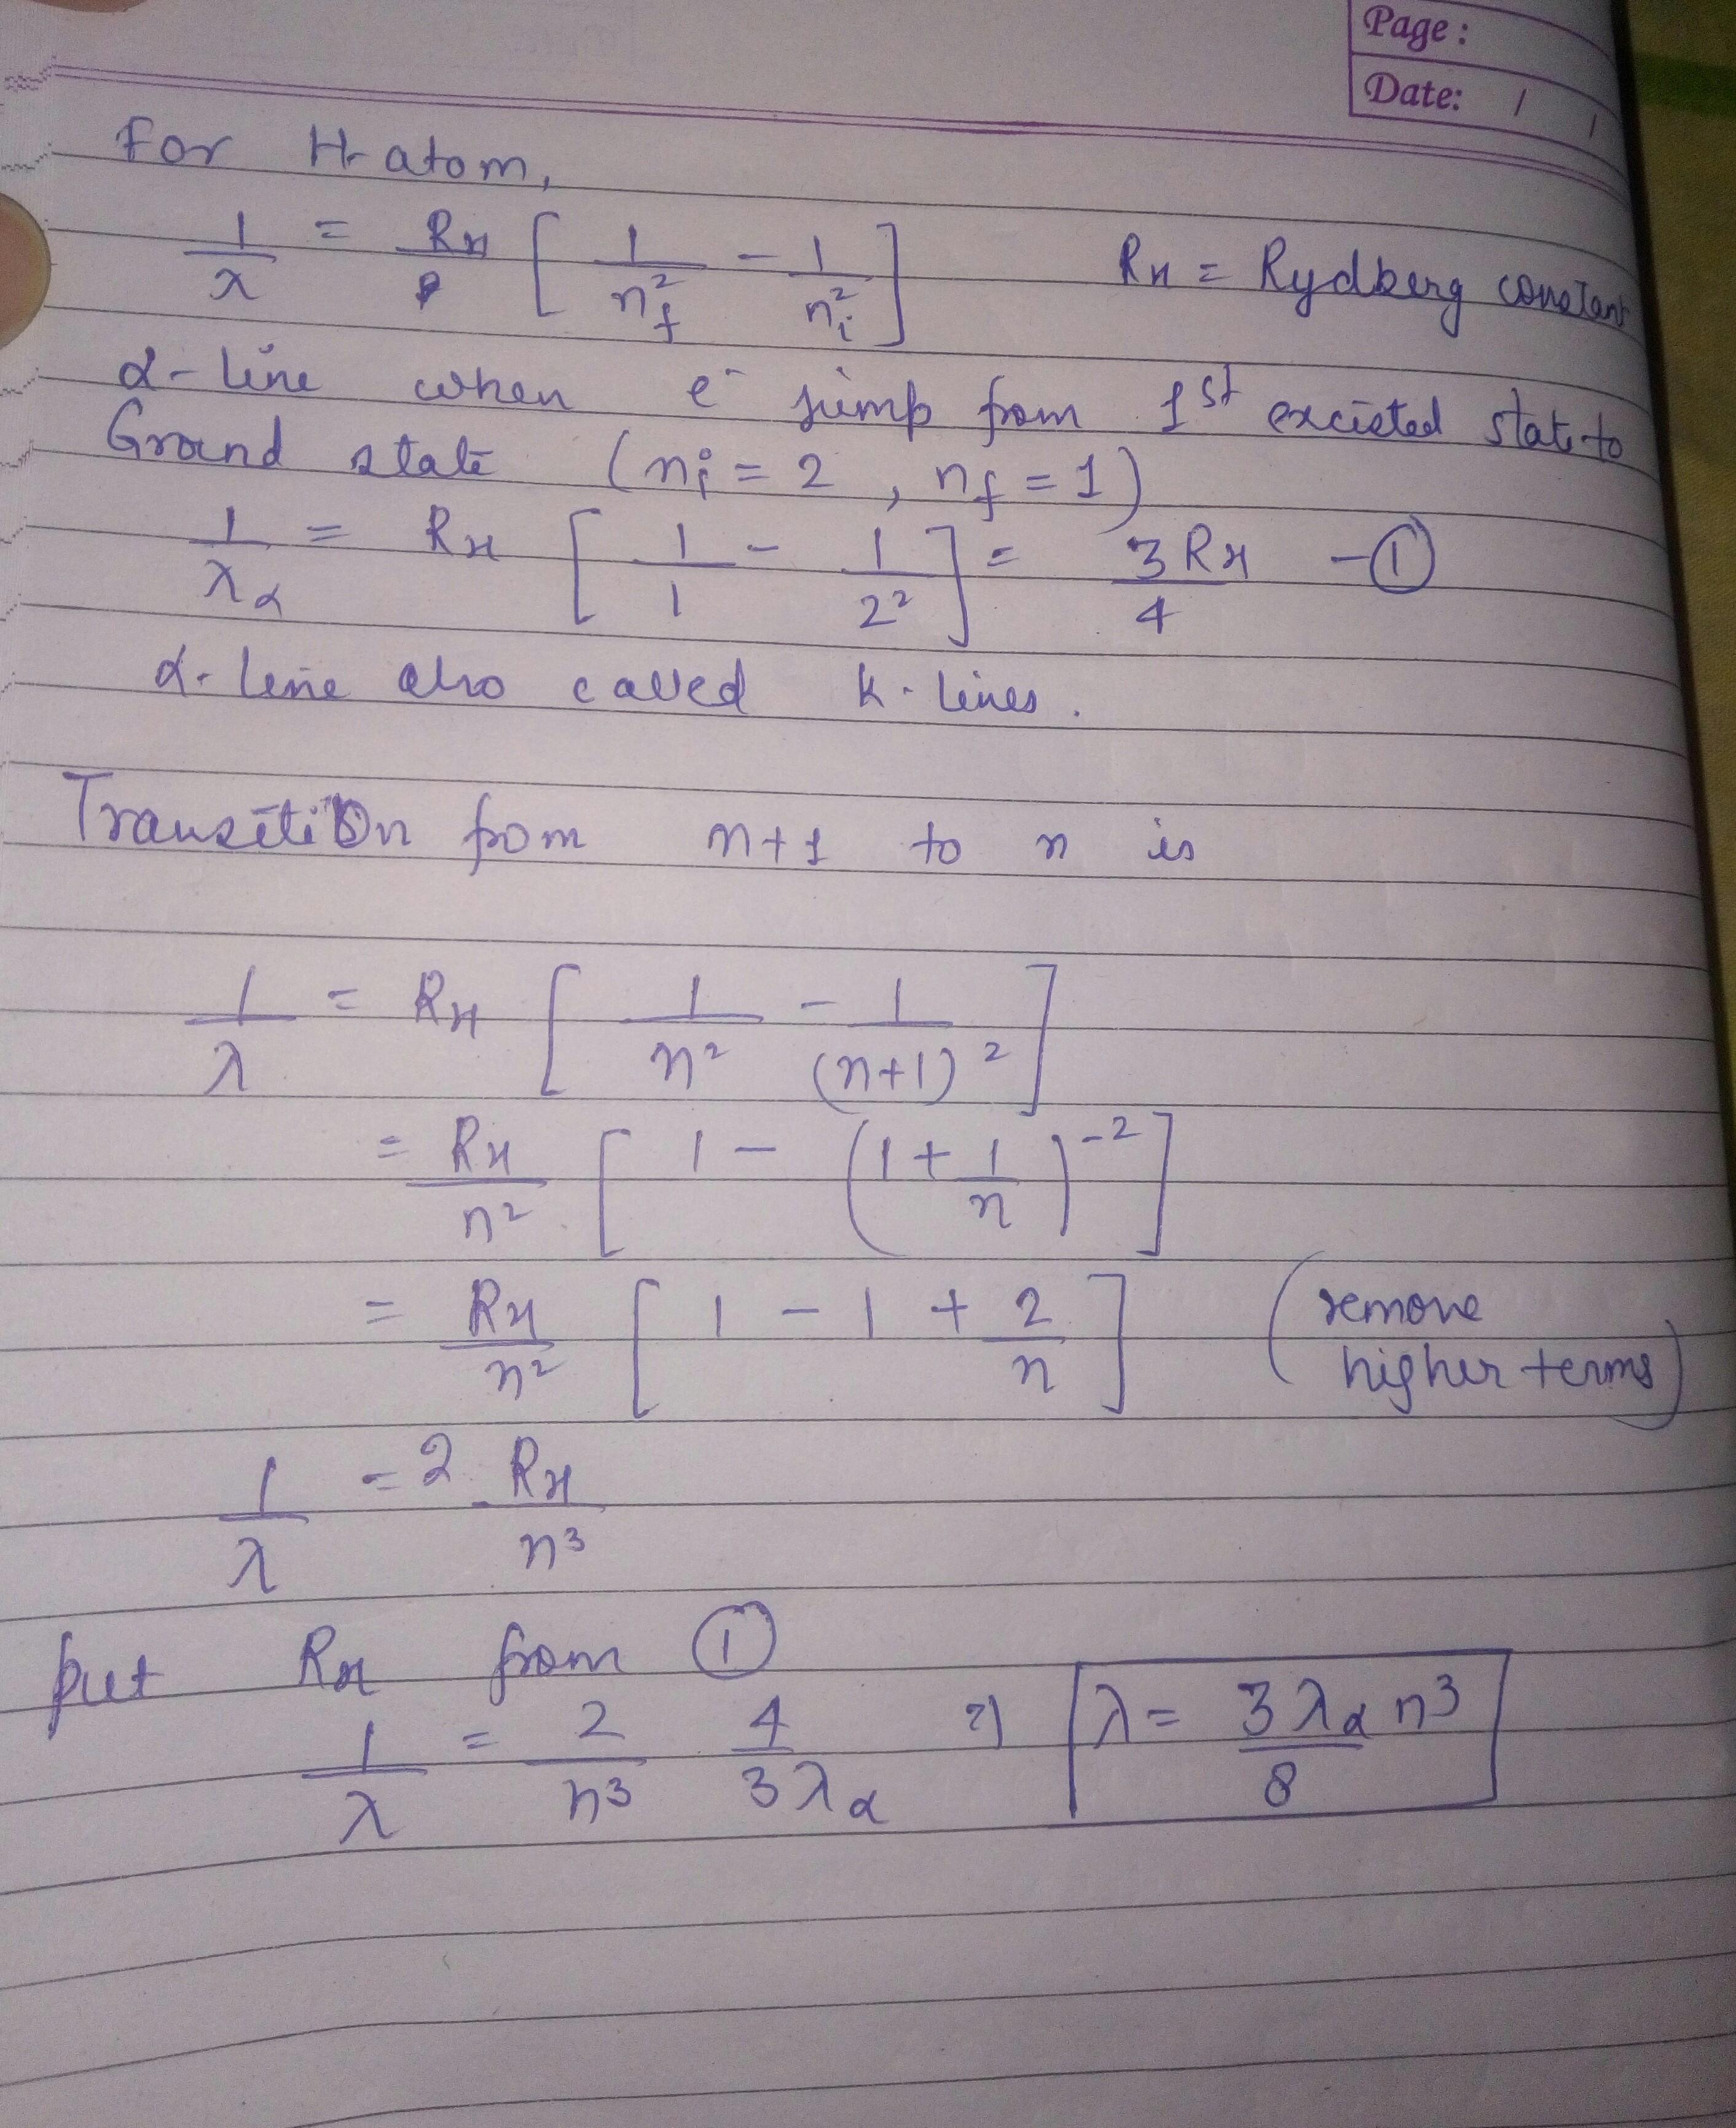 Page :
Date: / /
For H-atom,
1/λ = R_H [ 1/n_f^2 - 1/n_i^2 ] R_H = Rydberg constant
α- line when e^- jump from 1st excieted state to
Ground state (n_i = 2 , n_f = 1)
1/λ_α = R_H [ 1/1 - 1/2^2 ] = 3 R_H/4 - ①
α- line also called k - lines .
Transition from n+1 to n is
1/λ = R_H [ 1/n^2 - 1/(n+1)^2 ]
= R_H/n^2 [ 1 - (1 + 1/n)^-2 ]
= R_H/n^2 [ 1 - 1 + 2/n ] (remove
higher terms)
1/λ = 2 R_H/n^3
put R_H from ①
1/λ = 2/n^3 4/3λ_α ⇒ λ = 3 λ_α n^3/8